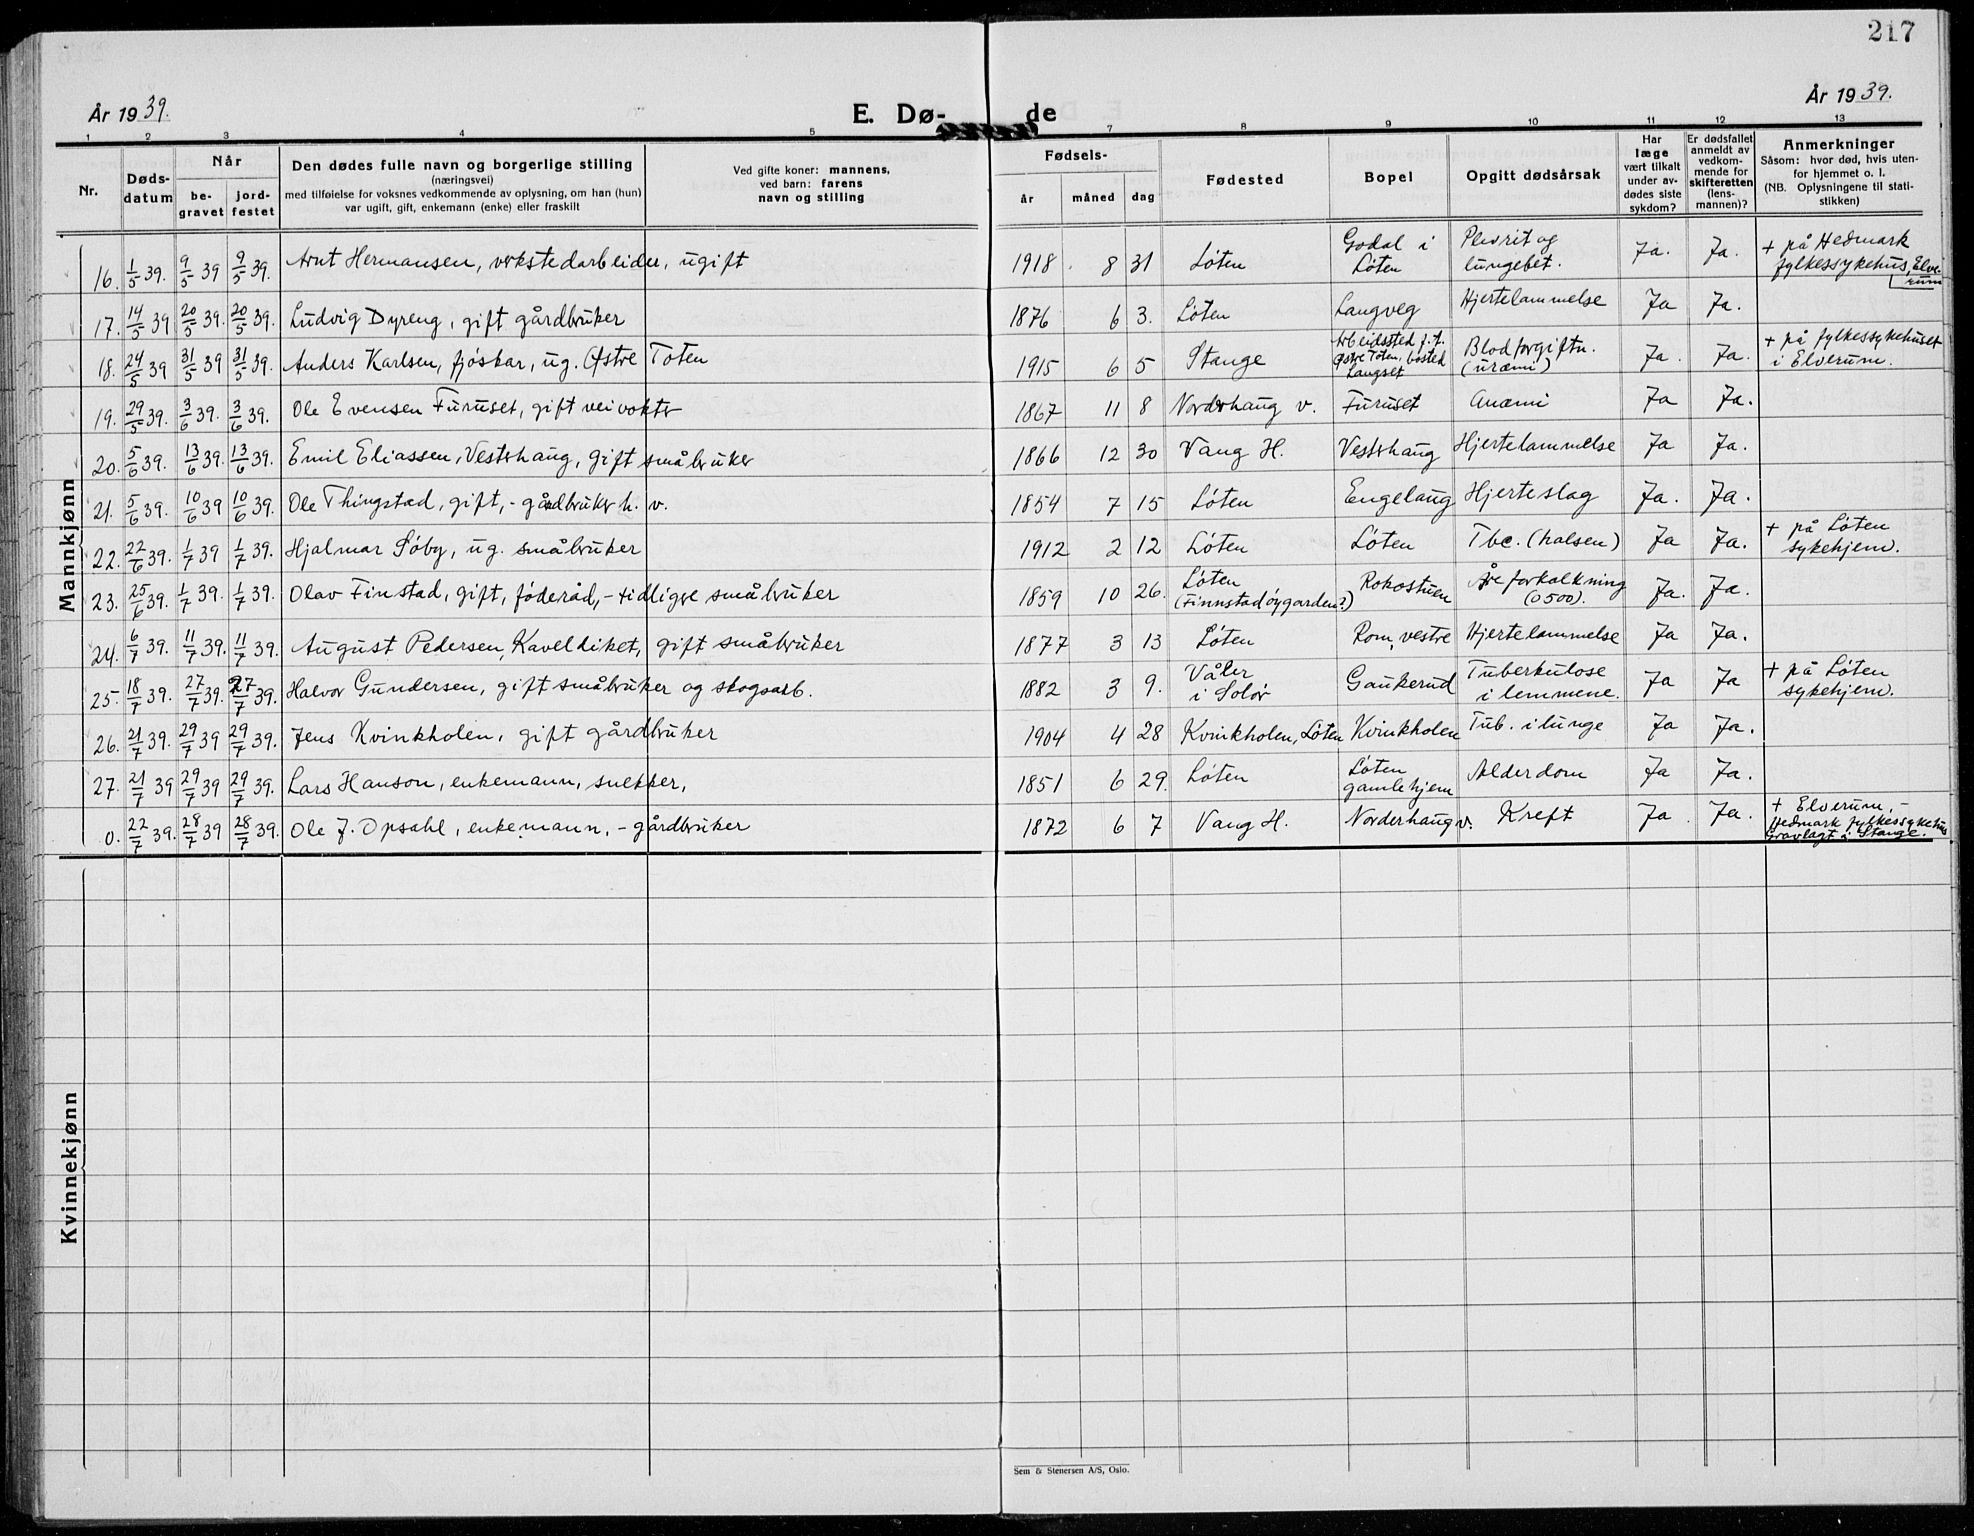 217
År 1939.
E. Dø- de
År 1939.
1 2 3 4 5 7 8 9 10 11 12 13
Nr.
Døds-
datum
Når
be-
gravet
jord-
festet
Den dødes fulle navn og borgerlige stilling
(næringsvei)
med tilføielse for voksnes vedkommende av oplysning, om han (hun)
var ugift, gift, enkemann (enke) eller fraskilt
Ved gifte koner: mannens,
ved barn: farens
navn og stilling
Fødsels-
år måned dag
Fødested
Bopel
Opgitt dødsårsak
Har
læge
vært tilkalt
under av-
dødes siste
sykdom?
Er dødsfallet
anmeldt av
vedkom-
mende for
skifteretten
(lens-
mannen)?
Anmerkninger
Såsom: hvor død, hvis uten-
for hjemmet o. l.
(NB. Oplysningene til stati-
stikken)
Mannkjønn
16. 1/5 39. 9/5 39 9/5 39. Arnt Hermansen, verkstedarbeider, ugift 1918 8 31 Løten Godal i Løten Plevrit og lungebet. Ja. Ja. + på Hedmark fylkessykehus, Elverum
17. 14/5 39 20/5 39. 20/5 39. Ludvig Dyreng, gift gårdbruker 1876 6 3. Løten Langveg Hjertelammelse Ja Ja.
18. 24/5 39 31/5 39 31/5 39. Anders Karlsen, fjøskar, ug. Østre Toten 1915 6 5 Stange Arbeidssted f.t. Østre Toten, bosted Langset Blodforgiftn. (uræmi) Ja. Ja. + på fylkessykehuset i Elverum.
19. 29/5 39. 3/6 39. 3/6 39. Ole Evensen Furuset, gift veivokter 1867 11 8 Norderhaug v. Furuset Anæmi Ja Ja.
20. 5/6 39. 13/6 39. 13/6 39. Emil Eliassen, Vesterhaug, gift småbruker 1866 12 30 Vang H. Vesterhaug Hjertelammelse Ja Ja.
21. 5/6 39. 10/6 39 10/6 39. Ole Thingstad, gift, - gårdbruker h. v. 1854 7 15 Løten Engelaug Hjerteslag Ja. Ja.
22. 22/6 39. 1/7 39 1/7 39. Hjalmar Søby, ug. småbruker 1912 2 12 Løten Løten Tbc. (halsen) Ja Ja. + på Løten sykehjem.
23. 25/6 39. 1/7 39. 1/7 39. Olav Finstad, gift, føderåd, - tidligere småbruker 1859 10 26. Løten (Finnstadøygarden?) Rokostuen Åreforkalkning (0500). Ja. Ja.
24. 6/7 39. 11/7 39. 11/7 39. August Pedersen, Kaveldiket, gift småbruker 1877 3 13 Løten Rom, vestre Hjertelammelse Ja Ja.
25. 18/7 39. 27/7 39. 27/7 39. Halvor Gundersen, gift småbruker og skogsarb. 1882 3 9. Våler i Solør Gaukerud Tuberkulose i lemmene. Ja Ja + på Løten sykehjem.
26. 21/7 39. 29/7 39 29/7 39. Jens Kvinkholen, gift gårdbruker 1904 4 28 Kvinkholen, Løten Kvinkholen Tub. i lunge Ja Ja.
27. 21/7 39 29/7 39 29/7 39. Lars Hanson, enkemann, snekker, 1851 6 29. Løten Løten gamlehjem Alderdom Ja Ja.
0. 22/7 39. 28/7 39 28/7 39. Ole J. Opsahl, enkemann, - gårdbruker 1872 6 7 Vang H. Norderhaug v. Kreft Ja. Ja. + Elverum, - Hedmark fylkessykehus Gravlagt i Stange.
Kvinnekjønn
Sem & Stenersen A/S, Oslo.